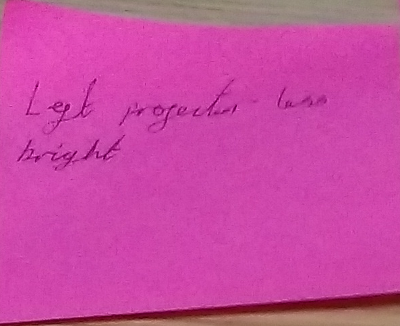 Left projector less
bright